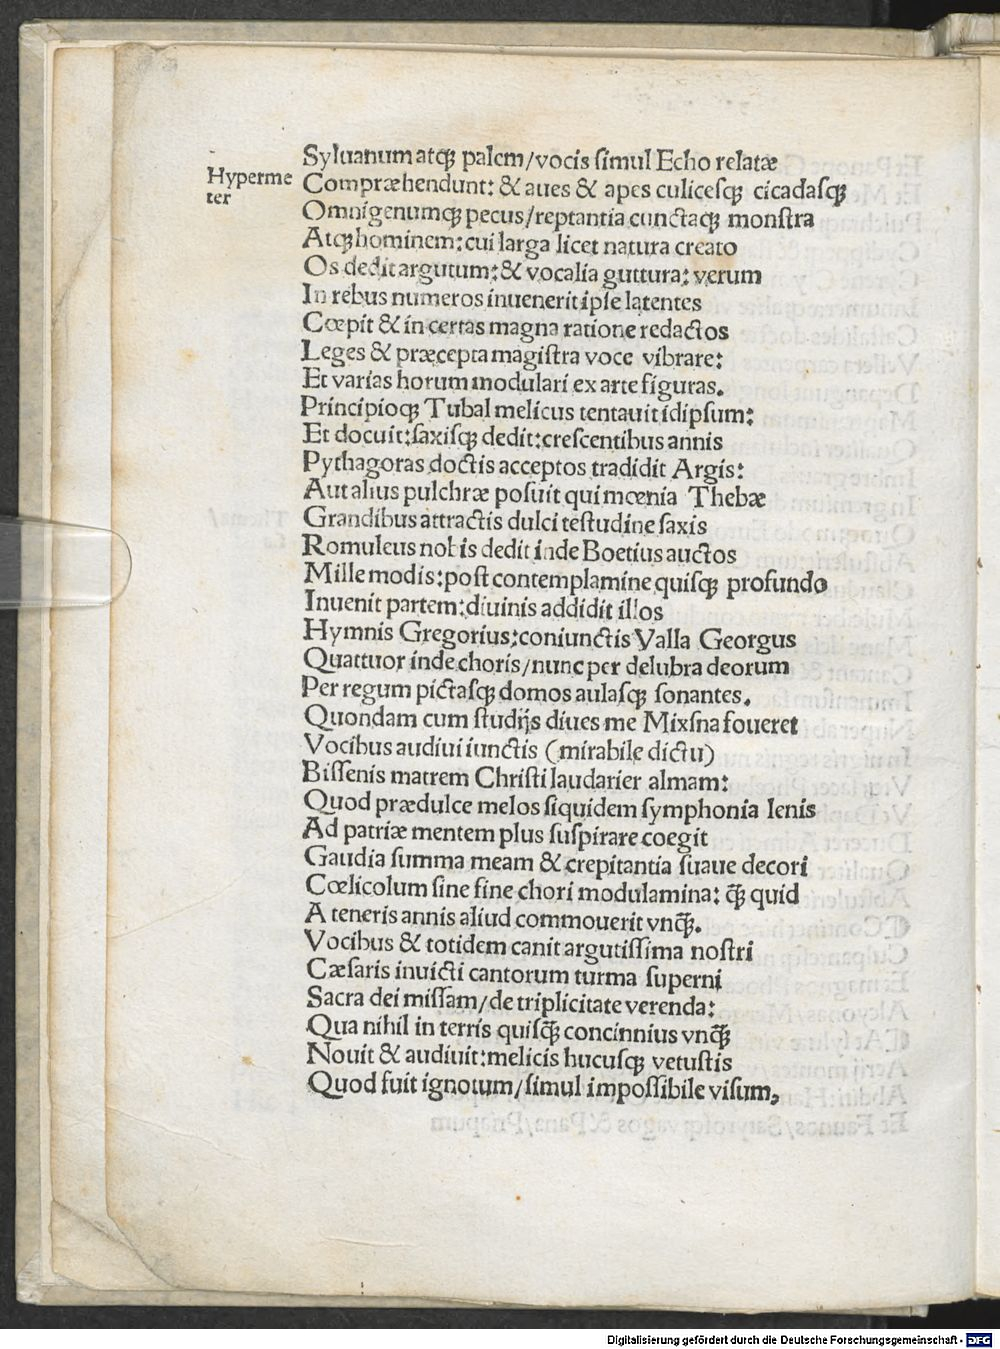 Syluanum atq; palem/vocis simul Echo relatæ
Hyperme
ter
Compræhendunt: & aues & apes culicesq; cicadasq;
Omnigenumq; pecus/reptantia cunctaq; monstra
Atq; hominem: cui larga licet natura creato
Os dedit argutum: & vocalia guttura: verum
In rebus numeros inuenerit ipse latentes
Cœpit & in certas magna ratione redactos
Leges & præcepta magistra voce vibrare:
Et varias horum modulari ex arte figuras.
Principioq; Tubal melicus tentauit idipsum:
Et docuit: saxisq; dedit: crescentibus annis
Pythagoras doctis acceptos tradidit Argis:
Aut alius pulchræ posuit qui mœnia Thebæ
Grandibus attractis dulci testudine saxis
Romuleus nobis dedit inde Boetius auctos
Mille modis: post contemplamine quisq; profundo
Inuenit partem: diuinis addidit illos
Hymnis Gregorius: coniunctis Valla Georgus
Quattuor inde choris/nunc per delubra deorum
Per regum pictasq; domos aulasq; sonantes.
Quondam cum studijs diues me Mixsna foueret
Vocibus audiui iunctis (mirabile dictu)
Bissenis matrem Christi laudarier almam:
Quod prædulce melos siquidem symphonia lenis
Ad patriæ mentem plus suspirare coegit
Gaudia summa meam & crepitantia suaue decori
Cœlicolum sine fine chori modulamina: q̃ quid
A teneris annis aliud commouerit vnq̃.
Vocibus & totidem canit argutissima nostri
Cæsaris inuicti cantorum turma superni
Sacra dei missam/de triplicitate verenda:
Qua nihil in terris quisq̃ concinnius vnq̃
Nouit & audiuit: melicis hucusq; vetustis
Quod fuit ignotum/simul impossibile visum,
Digitalisierung gefördert durch die Deutsche Forschungsgemeinschaft - DFG